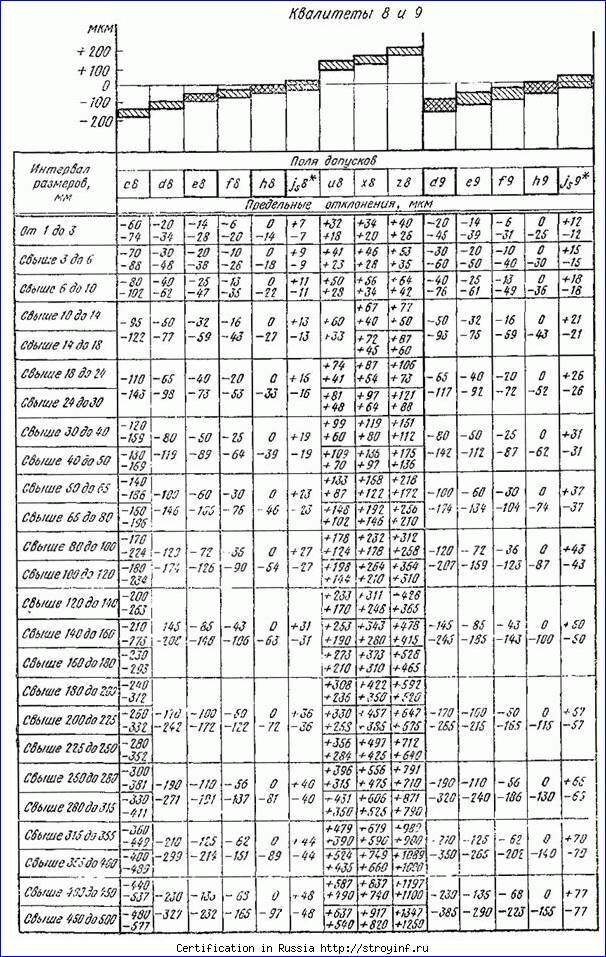 Квалитеты 8 и 9
мкм
+200
+100
0
-100
-200
Интервал размеров, мм
Поля допусков
c8 d8 e8 f8 h8 js8* u8 x8 z8 d9 e9 f9 h9 js9*
Предельные отклонения, мкм
От 1 до 3 -60 -20 -14 -6 0 +7 +32 +34 +40 -20 -14 -6 0 +12
-74 -34 -28 -20 -14 -7 +18 +20 +26 -45 -39 -31 -25 -12
Свыше 3 до 6 -70 -30 -20 -10 0 +9 +41 +46 +53 -30 -20 -10 0 +15
-88 -48 -38 -28 -18 -9 +23 +28 +35 -60 -50 -40 -30 -15
Свыше 6 до 10 -80 -40 -25 -13 0 +11 +50 +56 +64 -40 -25 -13 0 +18
-102 -62 -47 -35 -22 -11 +28 +34 +42 -76 -61 -49 -36 -18
Свыше 10 до 14 +67 +77
-95 -50 -32 -16 0 +13 +60 +40 +50 -50 -32 -16 0 +21
Свыше 14 до 18 -122 -77 -59 -43 -27 -13 +33 +72 +87 -93 -75 -59 -43 -21
+45 +60
Свыше 18 до 24 +74 +87 +106
-110 -65 -40 -20 0 +16 +41 +54 +73 -65 -40 -20 0 +26
Свыше 24 до 30 -143 -98 -73 -53 -33 -16 +81 +97 +121 -117 -92 -72 -52 -26
+48 +64 +88
Свыше 30 до 40 -120 +99 +119 +151
-159 -80 -50 -25 0 +19 +60 +80 +112 -80 -50 -25 0 +31
Свыше 40 до 50 -130 -119 -89 -64 -39 -19 +109 +136 +175 -142 -112 -87 -62 -31
-169 +70 +97 +136
Свыше 50 до 65 -140 +133 +168 +218
-186 -100 -60 -30 0 +23 +87 +122 +172 -100 -60 -30 0 +37
Свыше 65 до 80 -150 -146 -106 -76 -46 -23 +148 +192 +256 -174 -134 -104 -74 -37
-196 +102 +146 +210
Свыше 80 до 100 -170 +178 +232 +312
-224 -120 -72 -36 0 +27 +124 +178 +258 -120 -72 -36 0 +43
Свыше 100 до 120 -180 -174 -126 -90 -54 -27 +198 +264 +364 -207 -159 -123 -87 -43
-234 +144 +210 +310
Свыше 120 до 140 -200 +233 +311 +428
-263 +170 +248 +365
Свыше 140 до 160 -210 -145 -85 -43 0 +31 +253 +343 +478 -145 -85 -43 0 +50
-273 -208 -148 -106 -63 -31 +190 +280 +415 -245 -185 -143 -100 -50
Свыше 160 до 180 -230 +273 +373 +528
-293 +210 +310 +465
Свыше 180 до 200 -240 +308 +422 +592
-312 +236 +350 +520
Свыше 200 до 225 -260 -170 -100 -50 0 +36 +330 +457 +647 -170 -100 -50 0 +57
-332 -242 -172 -122 -72 -36 +258 +385 +575 -285 -215 -165 -115 -57
Свыше 225 до 250 -280 +356 +497 +712
-352 +284 +425 +640
Свыше 250 до 280 -300 +396 +556 +791
-381 -190 -110 -56 0 +40 +315 +475 +710 -190 -110 -56 0 +65
Свыше 280 до 315 -330 -271 -191 -137 -81 -40 +431 +606 +871 -320 -240 -186 -130 -65
-411 +350 +525 +790
Свыше 315 до 355 -360 +479 +679 +989
-449 -210 -125 -62 0 +44 +390 +590 +900 -210 -125 -62 0 +70
Свыше 355 до 400 -400 -299 -214 -151 -89 -44 +524 +749 +1089 -350 -265 -202 -140 -70
-489 +435 +660 +1000
Свыше 400 до 450 -440 +587 +837 +1197
-537 -230 -135 -68 0 +48 +490 +740 +1100 -230 -135 -68 0 +77
Свыше 450 до 500 -480 -327 -232 -165 -97 -48 +637 +917 +1347 -385 -290 -223 -155 -77
-577 +540 +820 +1250
Certification in Russia http://stroyinf.ru